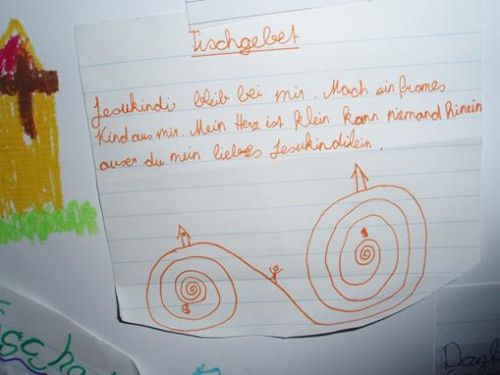 Tischgebet
Jesukindi bleib bei mir. Mach ein fromes
Kind aus mir. Mein Herz ist klein kann niemand hinein
auser du mein liebes Jesukindilein.
Dank